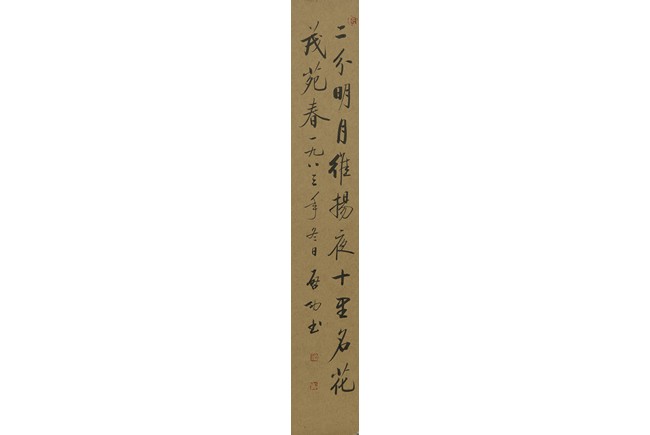 二分明月維揚夜十里名花
茂苑春一九八三年冬日启功书